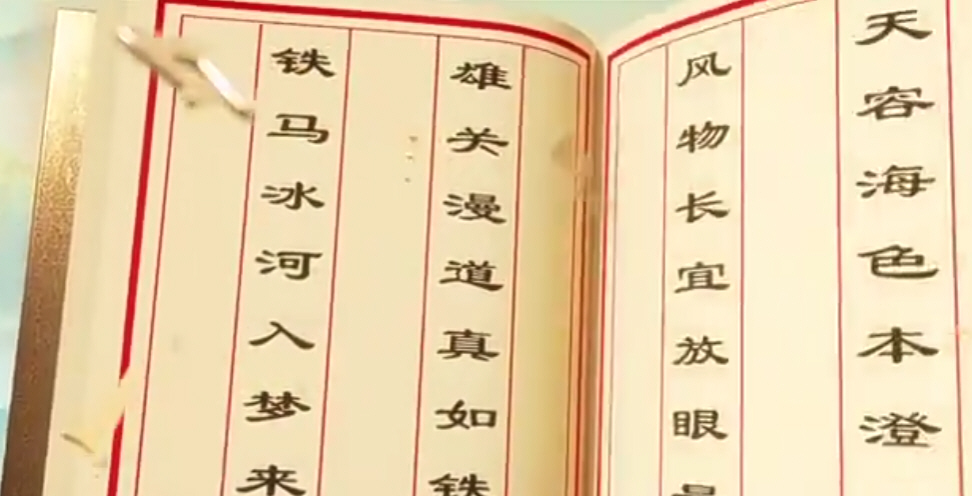 天容海色本澄
风物长宜放眼
雄关漫道真如铁
铁马冰河入梦来